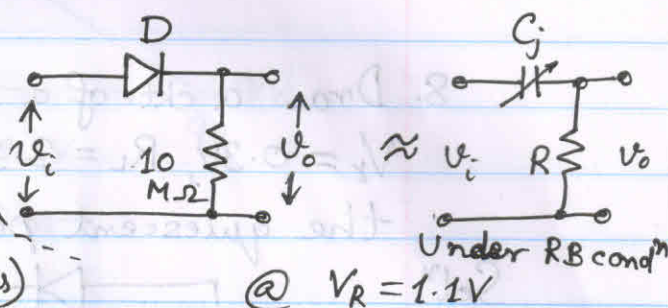 D
Cj
↑
vi
↓
10
MΩ
↑
vo
↓
≈
vi
R
vo
Under RB condn
s)
@ VR = 1.1V